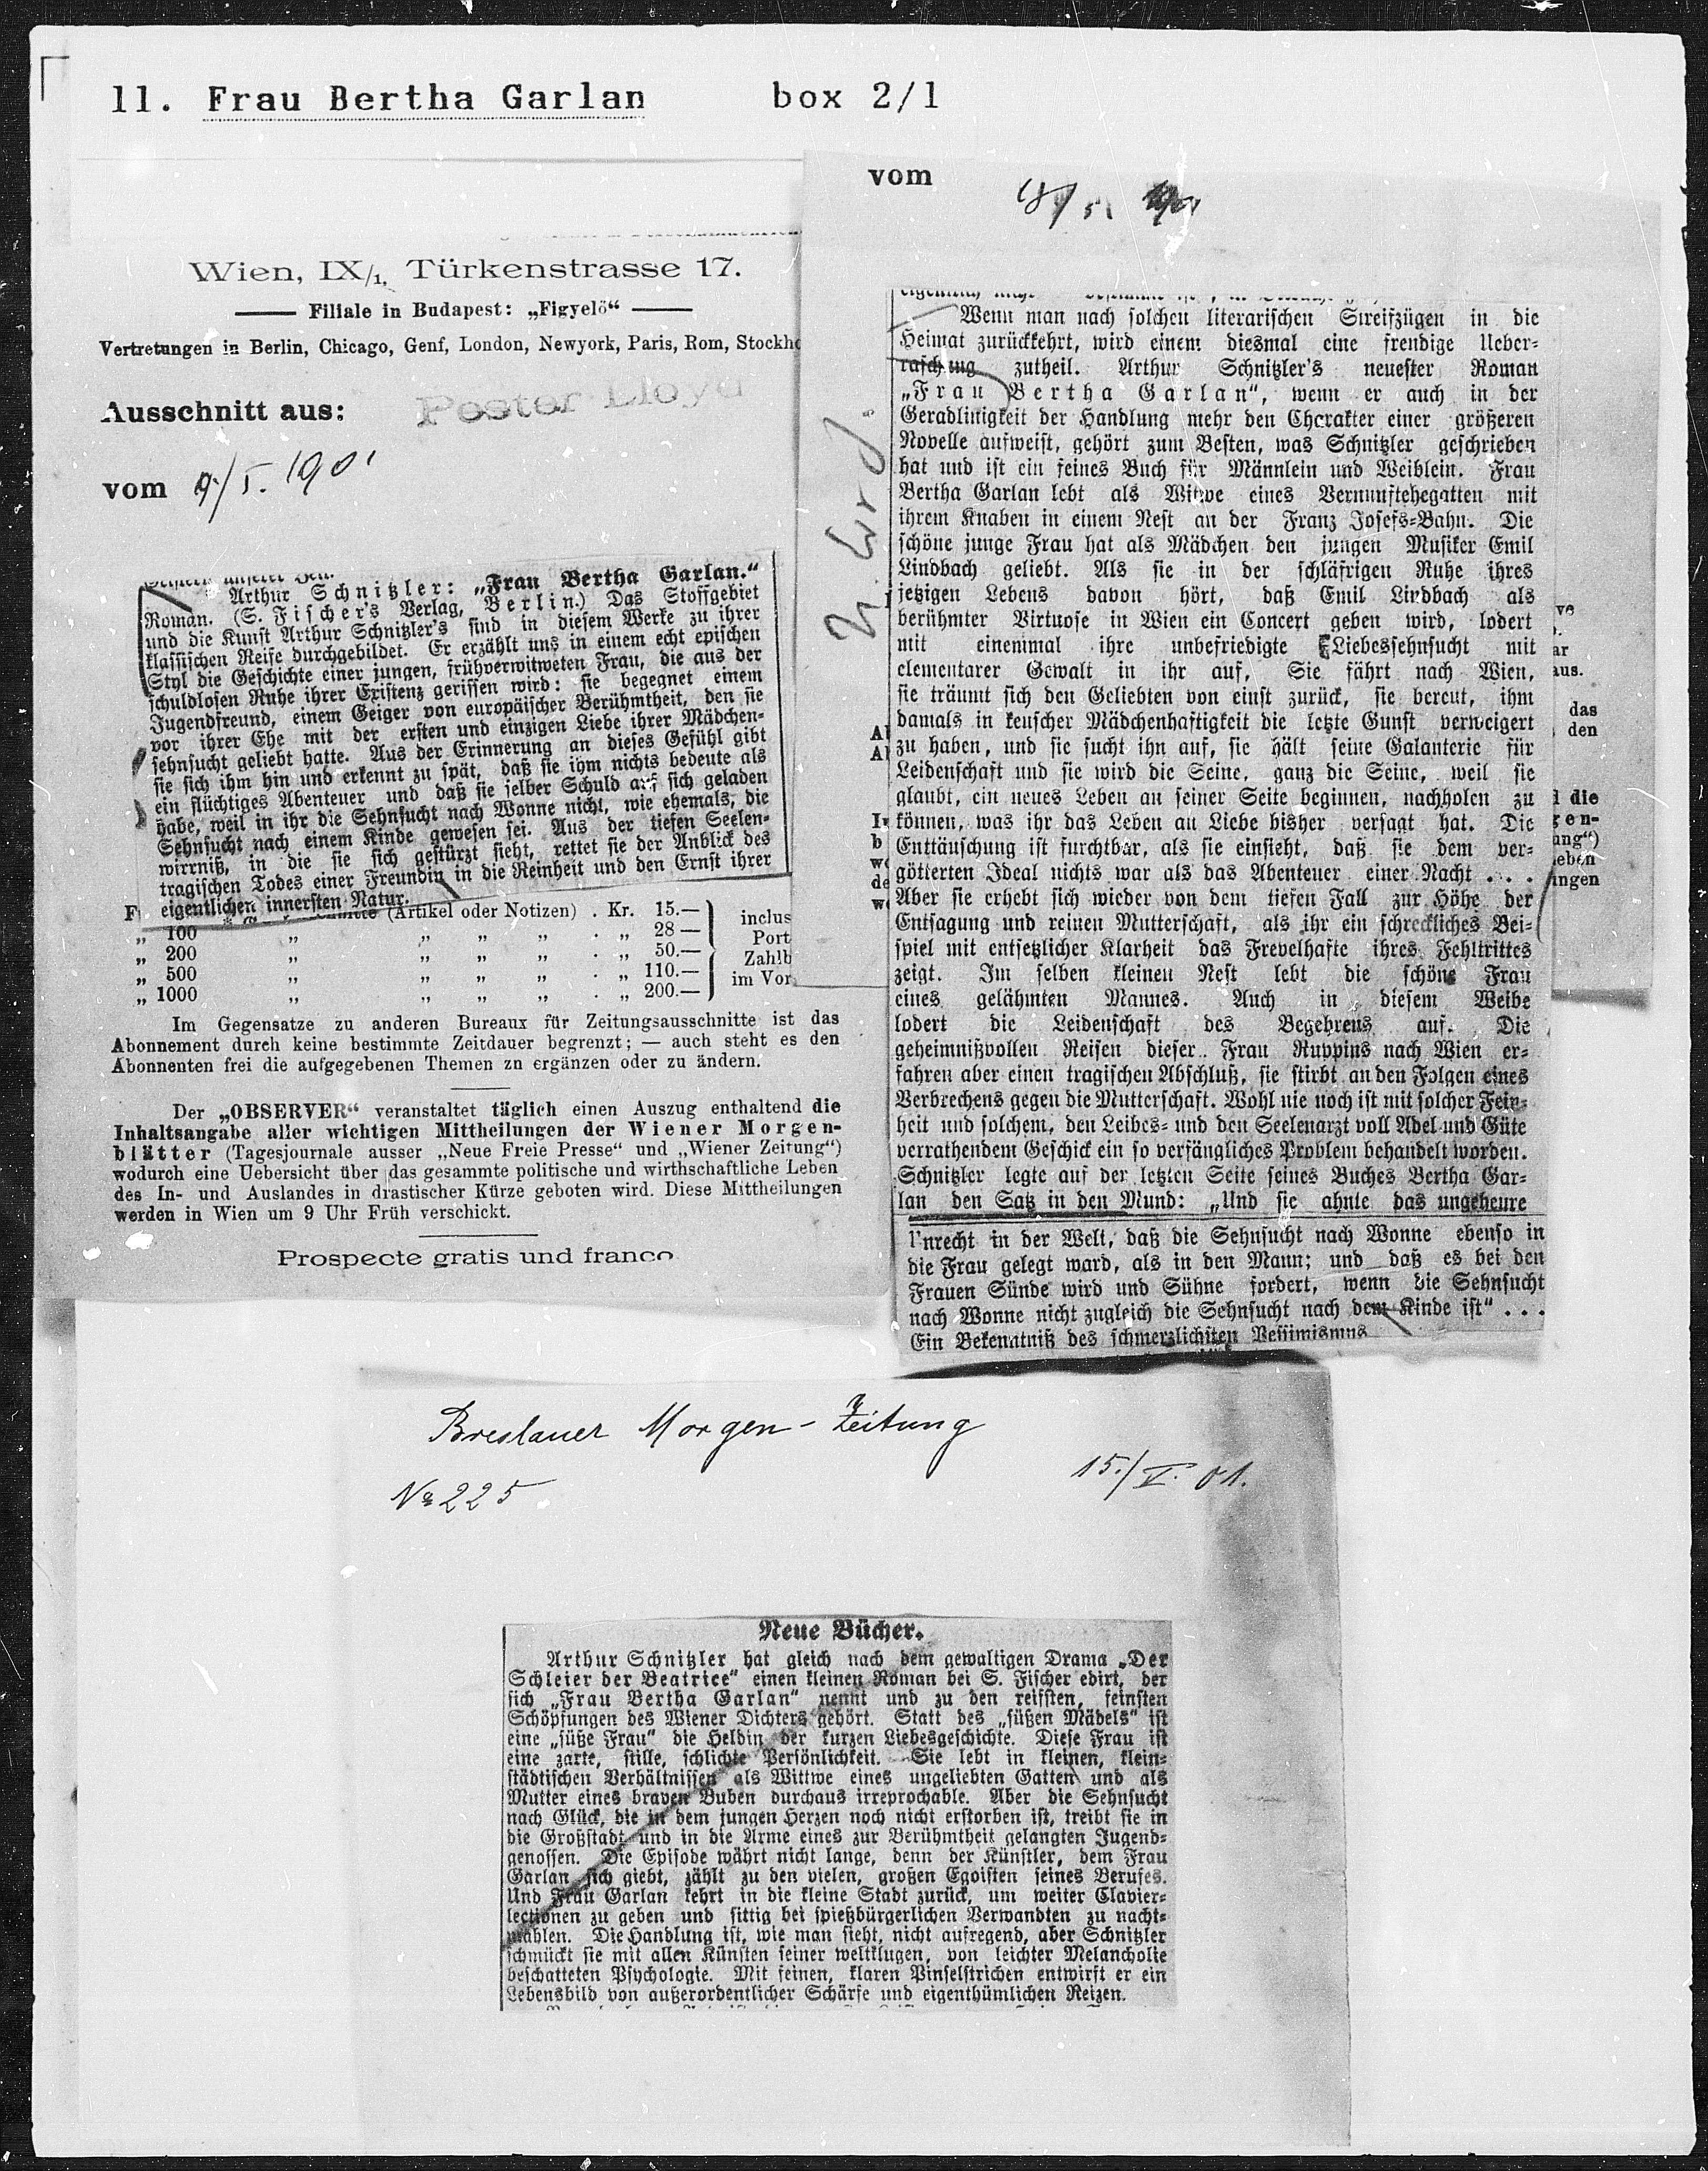 11. Frau Bertha Garlan box 2/1
Wien, IX/1, Türkenstrasse 17.
Filiale in Budapest: „Figyelö“
Vertretungen in Berlin, Chicago, Genf, London, Newyork, Paris, Rom, Stockho
Ausschnitt aus: Pester Lloyd
vom 9/5. 1901
Arthur Schnitzler: „Frau Bertha Garlan.“
Roman. (S. Fischer's Verlag, Berlin.) Das Stoffgebiet
und die Kunst Arthur Schnitzler's sind in diesem Werke zu ihrer
klassischen Reife durchgebildet. Er erzählt uns in einem echt epischen
Styl die Geschichte einer jungen, frühverwitweten Frau, die aus der
schuldlosen Ruhe ihrer Existenz gerissen wird: sie begegnet einem
Jugendfreund, einem Geiger von europäischer Berühmtheit, den sie
vor ihrer Ehe mit der ersten und einzigen Liebe ihrer Mädchen-
sehnsucht geliebt hatte. Aus der Erinnerung an dieses Gefühl gibt
sie sich ihm hin und erkennt zu spät, daß sie ihm nichts bedeute als
ein flüchtiges Abenteuer und daß sie selber Schuld auf sich geladen
habe, weil in ihr die Sehnsucht nach Wonne nicht, wie ehemals, die
Sehnsucht nach einem Kinde gewesen sei. Aus der tiefen Seelen-
wirrniß, in die sie sich gestürzt sieht, rettet sie der Anblick des
tragischen Todes einer Freundin in die Reinheit und den Ernst ihrer
eigentlichen innersten Natur.
(Artikel oder Notizen) . Kr. 15.— inclus
„ 100 „ „ „ „ . „ 28 — Port
„ 200 „ „ „ „ . „ 50.— Zahlb
„ 500 „ „ „ „ . „ 110.— im Vor
„ 1000 „ „ „ „ . „ 200.—
Im Gegensatze zu anderen Bureaux für Zeitungsausschnitte ist das
Abonnement durch keine bestimmte Zeitdauer begrenzt; — auch steht es den
Abonnenten frei die aufgegebenen Themen zu ergänzen oder zu ändern.
Der „OBSERVER“ veranstaltet täglich einen Auszug enthaltend die
Inhaltsangabe aller wichtigen Mittheilungen der Wiener Morgen-
blätter (Tagesjournale ausser „Neue Freie Presse“ und „Wiener Zeitung“)
wodurch eine Uebersicht über das gesammte politische und wirthschaftliche Leben
des In- und Auslandes in drastischer Kürze geboten wird. Diese Mittheilungen
werden in Wien um 9 Uhr Früh verschickt.
Prospecte gratis und franco
vom 18/5 1901
Wenn man nach solchen literarischen Streifzügen in die
Heimat zurückkehrt, wird einem diesmal eine freudige Ueber-
raschung zutheil. Arthur Schnitzler's neuester Roman
„Frau Bertha Garlan“, wenn er auch in der
Geradlinigkeit der Handlung mehr den Charakter einer größeren
Novelle aufweist, gehört zum Besten, was Schnitzler geschrieben
hat und ist ein feines Buch für Männlein und Weiblein. Frau
Bertha Garlan lebt als Witwe eines Vernunftehegatten mit
ihrem Knaben in einem Nest an der Franz Josefs-Bahn. Die
schöne junge Frau hat als Mädchen den jungen Musiker Emil
Lindbach geliebt. Als sie in der schläfrigen Ruhe ihres
jetzigen Lebens davon hört, daß Emil Lindbach als
berühmter Virtuose in Wien ein Concert geben wird, lodert
mit eineinmal ihre unbefriedigte Liebessehnsucht mit
elementarer Gewalt in ihr auf. Sie fährt nach Wien,
sie träumt sich den Geliebten von einst zurück, sie bereut, ihm
damals in keuscher Mädchenhaftigkeit die letzte Gunst verweigert
zu haben, und sie sucht ihn auf, sie hält seine Galanterie für
Leidenschaft und sie wird die Seine, ganz die Seine, weil sie
glaubt, ein neues Leben an seiner Seite beginnen, nachholen zu
können, was ihr das Leben an Liebe bisher versagt hat. Die
Enttäuschung ist furchtbar, als sie einsieht, daß sie dem ver-
götterten Ideal nichts war als das Abenteuer einer Nacht . . .
Aber sie erhebt sich wieder von dem tiefen Fall zur Höhe der
Entsagung und reinen Mutterschaft, als ihr ein schreckliches Bei-
spiel mit entsetzlicher Klarheit das Frevelhafte ihres Fehltrittes
zeigt. Im selben kleinen Nest lebt die schöne Frau
eines gelähmten Mannes. Auch in diesem Weibe
lodert die Leidenschaft des Begehrens auf. Die
geheimnißvollen Reisen dieser Frau Ruppins nach Wien er-
fahren aber einen tragischen Abschluß, sie stirbt an den Folgen eines
Verbrechens gegen die Mutterschaft. Wohl nie noch ist mit solcher Fein-
heit und solchem, den Leibes- und den Seelenarzt voll Adel und Güte
verrathendem Geschick ein so verfängliches Problem behandelt worden.
Schnitzler legte auf der letzten Seite seines Buches Bertha Gar-
lan den Satz in den Mund: „Und sie ahnte das ungeheure
Unrecht in der Welt, daß die Sehnsucht nach Wonne ebenso in
die Frau gelegt ward, als in den Mann; und daß es bei den
Frauen Sünde wird und Sühne fordert, wenn die Sehnsucht
nach Wonne nicht zugleich die Sehnsucht nach dem Kinde ist“ . . .
Ein Bekenntniß des schmerzlichsten Pessimismus
aus.
das
den
die
gen-
ang“)
eben
ingen
Breslauer Morgen-Zeitung
No 225
15./V. 01.
Neue Bücher.
Arthur Schnitzler hat gleich nach dem gewaltigen Drama „Der
Schleier der Beatrice“ einen kleinen Roman bei S. Fischer edirt, der
sich „Frau Bertha Garlan“ nennt und zu den reifsten, feinsten
Schöpfungen des Wiener Dichters gehört. Statt des „süßen Mädels“ ist
eine „süße Frau“ die Heldin der kurzen Liebesgeschichte. Diese Frau ist
eine zarte, stille, schlichte Persönlichkeit. Sie lebt in kleinen, klein-
städtischen Verhältnissen als Wittwe eines ungeliebten Gatten und als
Mutter eines braven Buben durchaus irreprochable. Aber die Sehnsucht
nach Glück, die in dem jungen Herzen noch nicht erstorben ist, treibt sie in
die Großstadt und in die Arme eines zur Berühmtheit gelangten Jugend-
genossen. Die Episode währt nicht lange, denn der Künstler, dem Frau
Garlan sich giebt, zählt zu den vielen, großen Egoisten seines Berufes.
Und Frau Garlan kehrt in die kleine Stadt zurück, um weiter Clavier-
lectionen zu geben und sittig bei spießbürgerlichen Verwandten zu nacht-
mahlen. Die Handlung ist, wie man sieht, nicht aufregend, aber Schnitzler
schmückt sie mit allen Künsten seiner weltklugen, von leichter Melancholie
beschatteten Psychologie. Mit feinen, klaren Pinselstrichen entwirft er ein
Lebensbild von außerordentlicher Schärfe und eigenthümlichen Reizen.